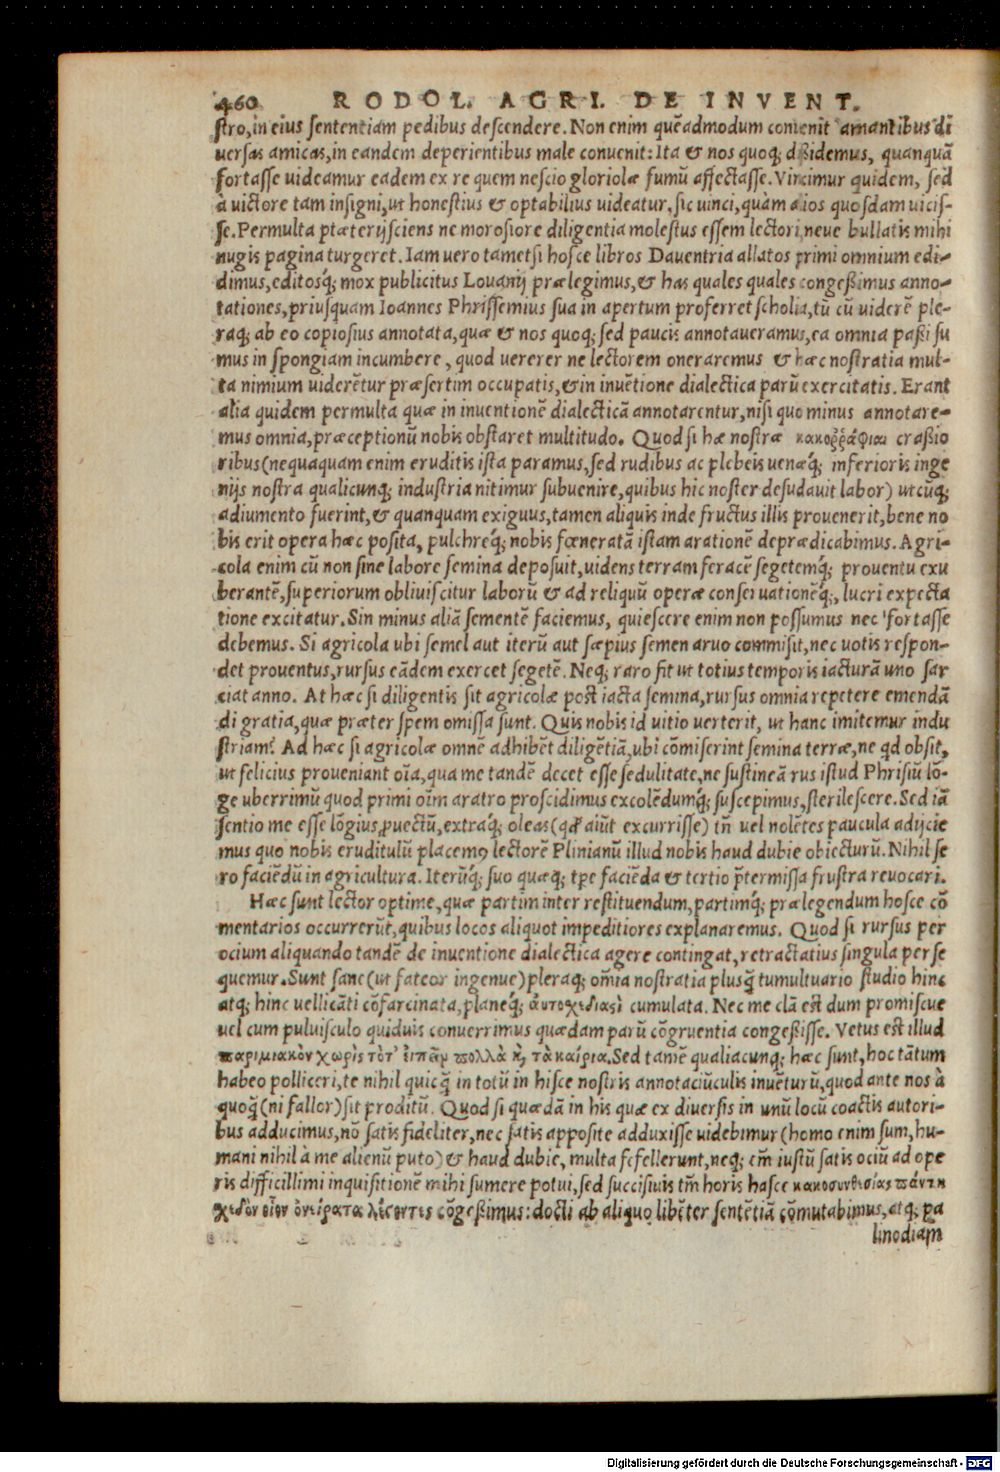 460 RODOL. AGRI. DE INVENT.
ſtro, in eius ſententiam pedibus deſcendere. Non enim quēadmodum conuenit amantibus di
uerſas amicas, in eandem deperientibus male conuenit: Ita & nos quoq; dißidemus, quanquā
fortaſſe uideamur eadem ex re quem neſcio gloriolæ fumū affectaſſe. Vincimur quidem, ſed
a uictore tam inſigni, ut honeſtius & optabilius uideatur, ſic uinci, quàm alios quoſdam uiciſ-
ſe. Permulta prætereijſciens ne moroſiore diligentia moleſtus eſſem lectori, neue bullatis mihi
nugis pagina turgeret. Iam uero tametſi hoſce libros Dauentria allatos primi omnium edi-
dimus, editosq́; mox publicitus Louanij prælegimus, & has quales quales congeßimus anno-
tationes, priuſquam Ioannes Phriſſemius ſua in apertum proferret ſcholia, tū cū uiderē ple-
raq; ab eo copioſius annotata, quæ & nos quoq; ſed paucis annotaueramus, ea omnia paßi ſu
mus in ſpongiam incumbere, quod uererer ne lectorem oneraremus & hæc noſtratia mul-
ta nimium uiderētur præſertim occupatis, & in inuētione dialectica parū exercitatis. Erant
alia quidem permulta quæ in inuentionē dialecticā annotarentur, niſi quo minus annotare-
mus omnia, præceptionū nobis obſtaret multitudo. Quod ſi hæ noſtræ κακοῤῥάφιαι craßio
ribus (nequaquam enim eruditis iſta paramus, ſed rudibus ac plebeis uenæq́; inferioris inge
nijs noſtra qualicunq; induſtria nitimur ſubuenire, quibus hic noſter deſudauit labor) utcūq;
adiumento fuerint, & quanquam exiguus, tamen aliquis inde fructus illis prouenerit, bene no
bis erit opera hæc poſita, pulchreq́; nobis fœneratā iſtam arationē deprædicabimus. Agri-
cola enim cū non ſine labore ſemina depoſuit, uidens terram feracē ſegetemq́; prouentu exu
berantē, ſuperiorum obliuiſcitur laborū & ad reliquū operæ conſeruationēq́;, lucri expecta
tione excitatur. Sin minus aliā ſementē faciemus, quieſcere enim non poſſumus nec fortaſſe
debemus. Si agricola ubi ſemel aut iterū aut ſæpius ſemen aruo commiſit, nec uotis reſpon-
det prouentus, rurſus eādem exercet ſegetē. Neq; raro fit ut totius temporis iacturā uno ſar
ciat anno. At hæc ſi diligentis ſit agricolæ poſt iacta ſemina, rurſus omnia repetere emendā
di gratia, quæ præter ſpem omiſſa ſunt. Quis nobis id uitio uerterit, ut hanc imitemur indu
ſtriam? Ad hæc ſi agricolæ omnē adhibēt diligētiā, ubi cōmiſerint ſemina terræ, ne qd obſit,
ut felicius proueniant oīa, qua me tandē decet eſſe ſedulitate, ne ſuſtineā rus iſtud Phriſiū lō-
ge uberrimū quod primi oīm aratro proſcidimus excolēdumq́; ſuſcepimus, ſterileſcere. Sed iā
ſentio me eſſe lōgius ꝓuectū, extraq́; oleas (qd aiūt excurriſſe) tñ uel nolētes paucula adijcie
mus quo nobis eruditulū placemꝰ lectorē Plinianū illud nobis haud dubie obiecturū. Nihil ſe
ro faciēdū in agricultura. Iterūq́; ſuo quæq; tpe faciēda & tertio p̄termiſſa fruſtra reuocari.
Hæc ſunt lector optime, quæ partim inter reſtituendum, partimq́; prælegendum hoſce cō
mentarios occurrerūt, quibus locos aliquot impeditiores explanaremus. Quod ſi rurſus per
ocium aliquando tandē de inuentione dialectica agere contingat, retractatius ſingula per ſe
quemur. Sunt ſane (ut fateor ingenue) pleraq; oīmia noſtratia pluſq̄ tumultuario ſtudio hinc
atq; hinc uellicāti cōfarcinata, planeq́; ἀυτοχεδιαςὶ cumulata. Nec me clā eſt dum promiſcue
uel cum puluiſculo quiduis conuerrimus quædam parū cōgruentia congeßiſſe. Vetus eſt illud
παριμιακὸν χωρὶς τότ' ἐιπεῖν πολλὰ κὴ τὰ καίρια. Sed tamē qualiacunq; hæc ſunt, hoc tātum
habeo polliceri, te nihil quicq̄ in totū in hiſce noſtris annotaciūculis inuētūrū, quod ante nos à
quoq̄ (ni fallor) ſit proditū. Quod ſi quædā in his quæ ex diuerſis in unū locū coactis autori-
bus adducimus, nō ſatis fideliter, nec ſatis appoſite adduxiſſe uidebimur (homo enim ſum, hu-
mani nihil à me alienū puto) & haud dubie, multa fefellerunt, neq; em̄ iuſtū ſatis ociū ad ope
ris difficillimi inquiſitionē mihi ſumere potui, ſed ſucciſiuis tm̄ horis haſce κακοσυνθεσίας πάντη
χεδὸν οἷον ὀνείρατα λέγοντες cōgeßimus: docti ab aliquo libēter ſentētiā cōmutabimus, atq; pa
linodiam
Digitalisierung gefördert durch die Deutsche Forschungsgemeinschaft - DFG